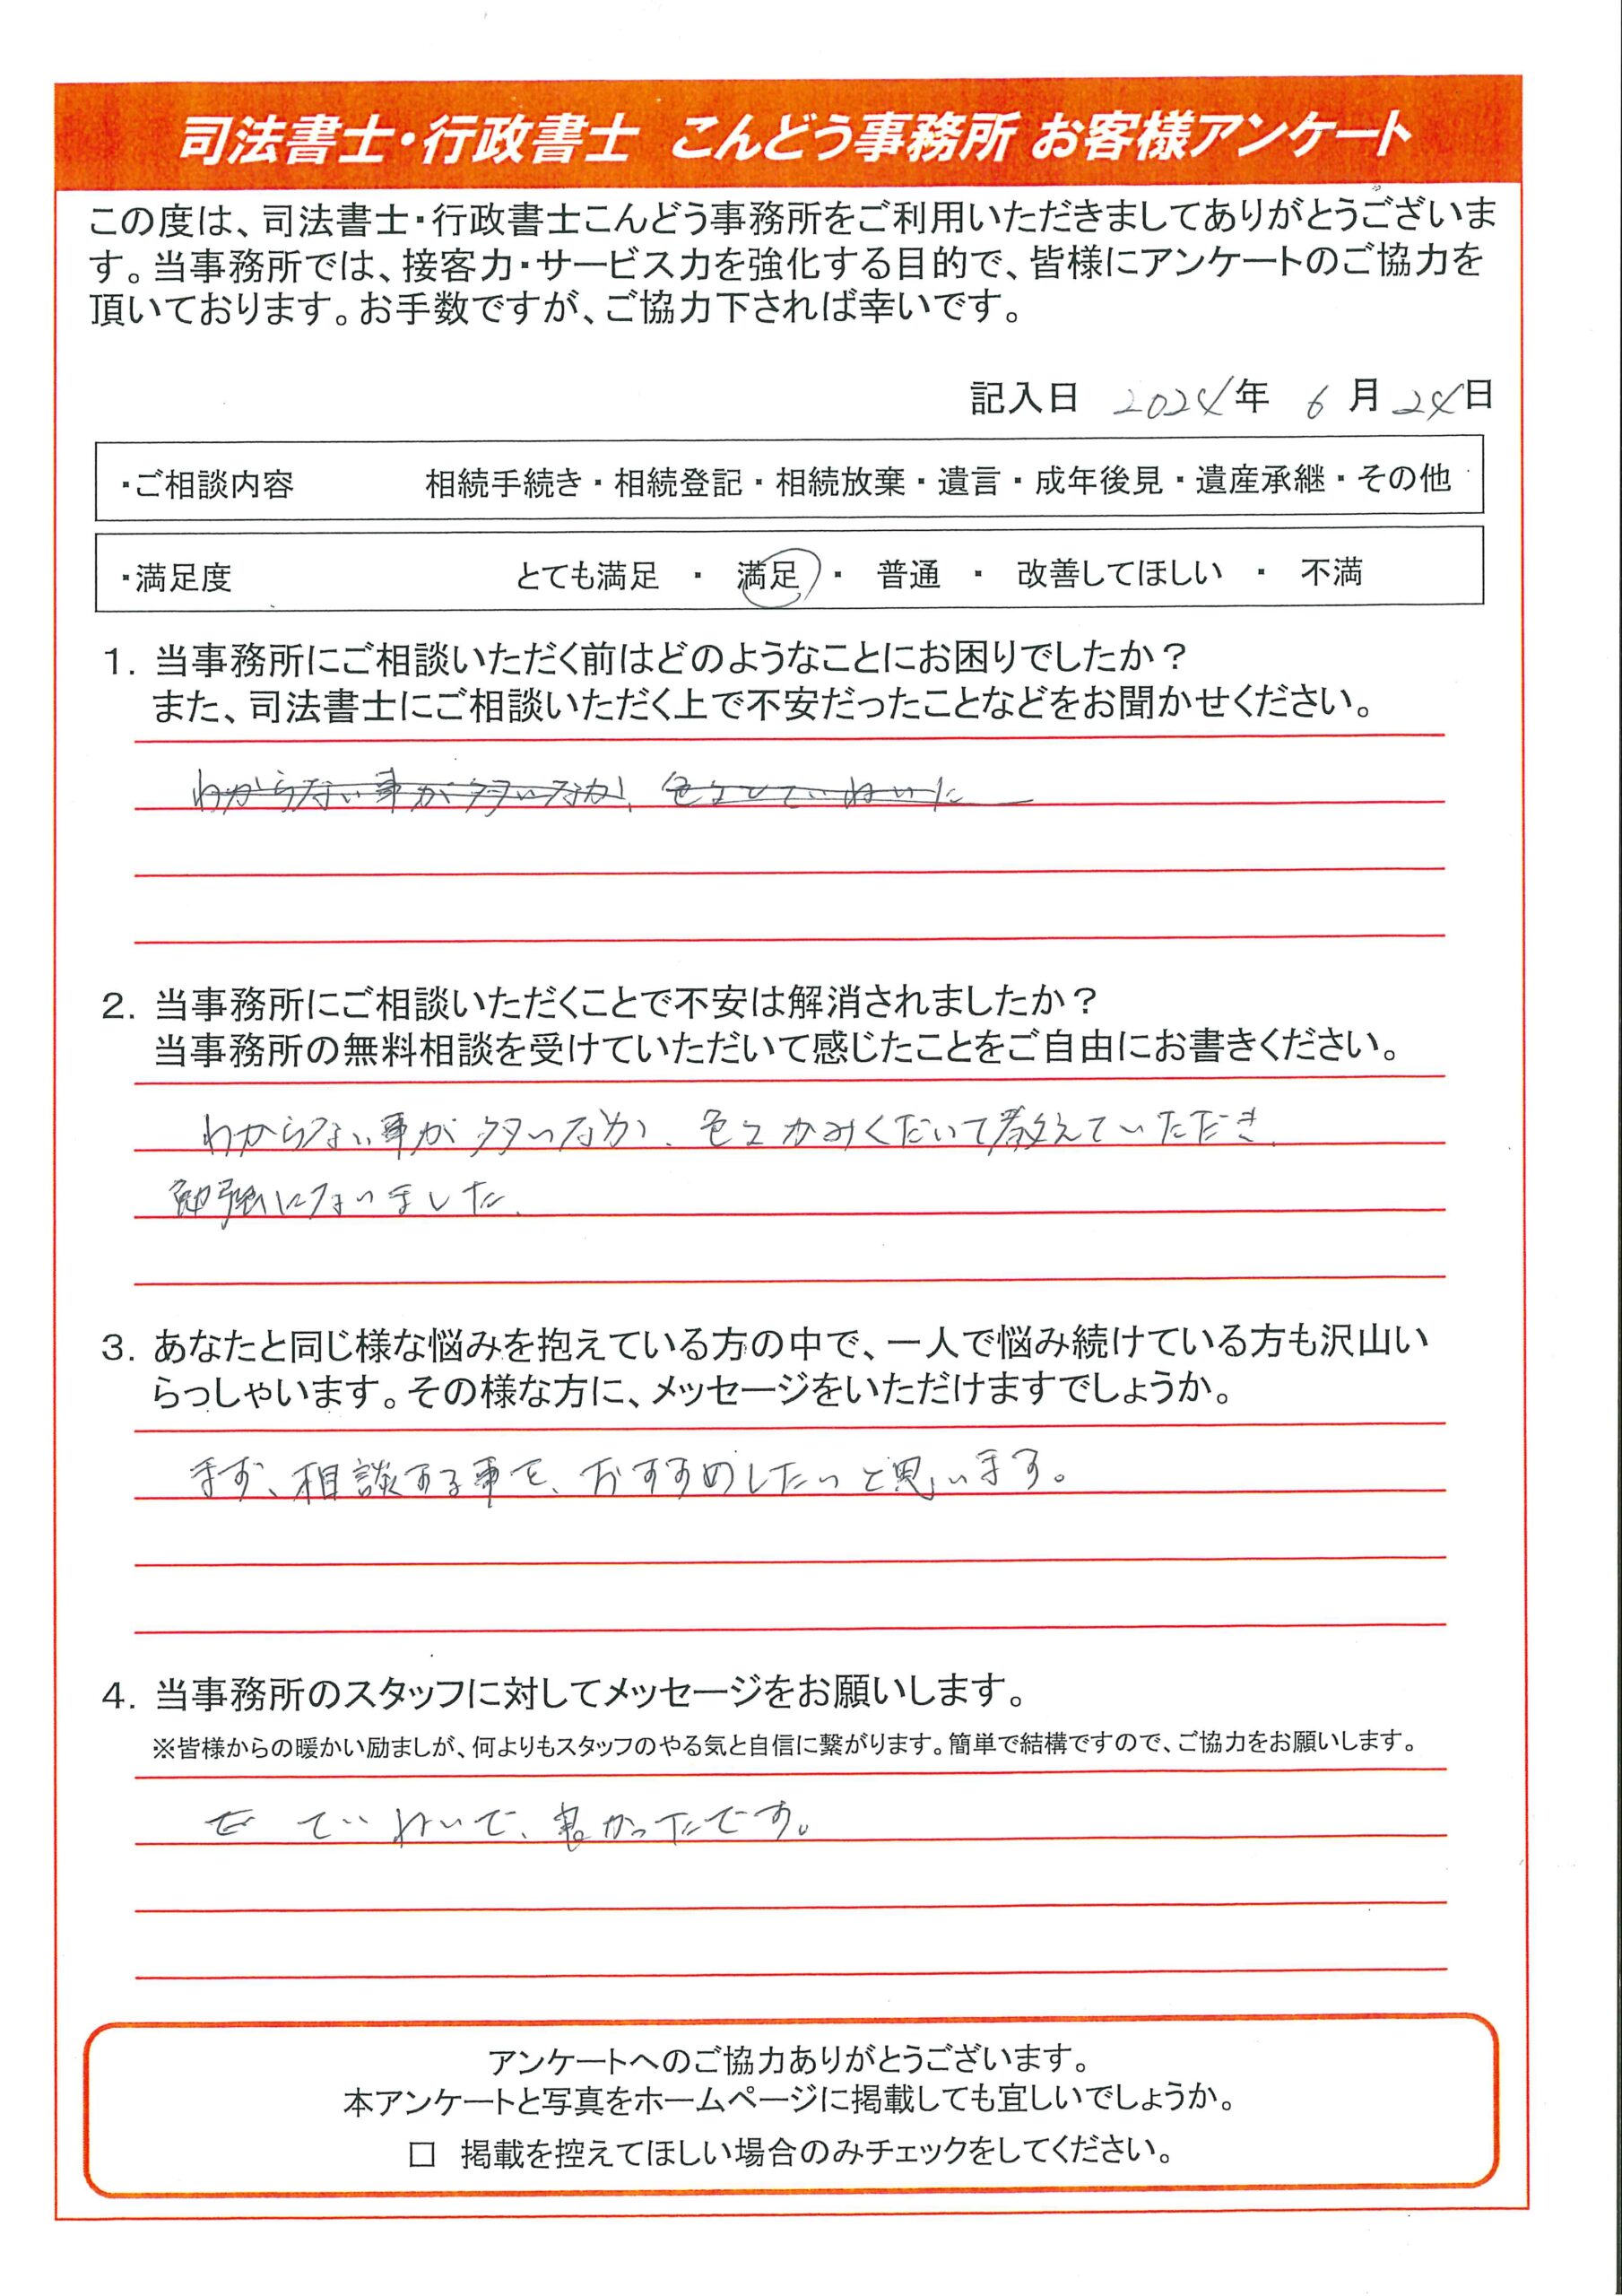 司法書士・行政書士 こんどう事務所 お客様アンケート
この度は、司法書士・行政書士こんどう事務所をご利用いただきましてありがとうございま
す。当事務所では、接客力・サービス力を強化する目的で、皆様にアンケートのご協力を
頂いております。お手数ですが、ご協力下されば幸いです。
記入日 2024年 6月24日
・ご相談内容 相続手続き・相続登記・相続放棄・遺言・成年後見・遺産承継・その他
・満足度 とても満足 ・ 満足 ・ 普通 ・ 改善してほしい ・ 不満
1. 当事務所にご相談いただく前はどのようなことにお困りでしたか？
また、司法書士にご相談いただく上で不安だったことなどをお聞かせください。
わからない事が多いなか、色々とていねいに
2. 当事務所にご相談いただくことで不安は解消されましたか？
当事務所の無料相談を受けていただいて感じたことをご自由にお書きください。
わからない事が多いなか、色々かみくだいて教えていただき、
勉強になりました。
3. あなたと同じ様な悩みを抱えている方の中で、一人で悩み続けている方も沢山い
らっしゃいます。その様な方に、メッセージをいただけますでしょうか。
まず、相談する事を、おすすめしたいと思います。
4. 当事務所のスタッフに対してメッセージをお願いします。
※皆様からの暖かい励ましが、何よりもスタッフのやる気と自信に繋がります。簡単で結構ですので、ご協力をお願いします。
ていねいで、良かったです。
アンケートへのご協力ありがとうございます。
本アンケートと写真をホームページに掲載しても宜しいでしょうか。
□ 掲載を控えてほしい場合のみチェックをしてください。